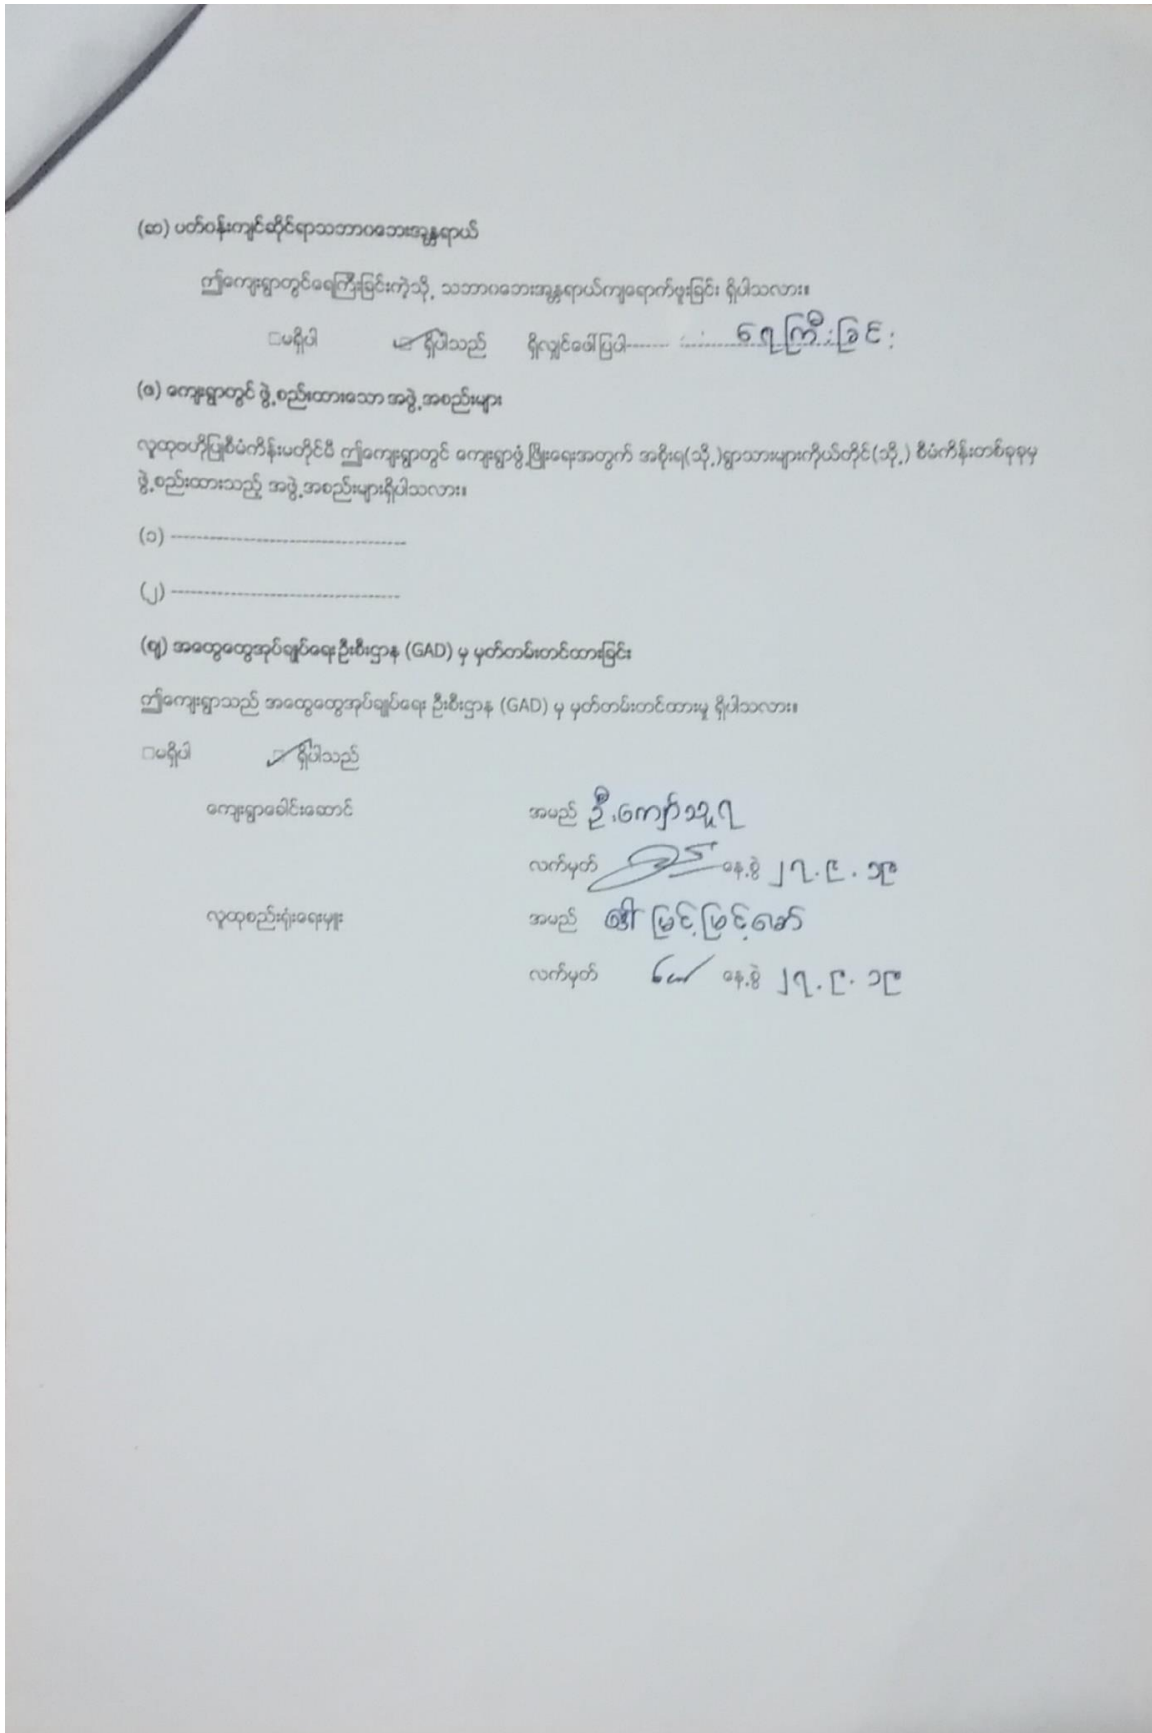 (ဆ) ပတ်ဝန်းကျင်ဆိုင်ရာသဘာဝဘေးအန္တရာယ်
ဤကျေးရွာတွင်ရေကြီးခြင်းကဲ့သို့ သဘာဝဘေးအန္တရာယ်ကျရောက်ဖူးခြင်း ရှိပါသလား။
□မရှိပါ □ ရှိပါသည် ရှိလျှင်ဖေါ်ပြပါ------- ရေကြီးခြင်း
(ဇ) ကျေးရွာတွင် ဖွဲ့စည်းထားသော အဖွဲ့အစည်းများ
လူထုဗဟိုပြုစီမံကိန်းမတိုင်မီ ဤကျေးရွာတွင် ကျေးရွာဖွံ့ဖြိုးရေးအတွက် အစိုးရ(သို့)ရွာသားများကိုယ်တိုင်(သို့) စီမံကိန်းတစ်ခုခုမှ
ဖွဲ့စည်းထားသည့် အဖွဲ့အစည်းများရှိပါသလား။
(၁) ------------------------------------
(၂) -----------------------------------
(ဈ) အထွေထွေအုပ်ချုပ်ရေးဦးစီးဌာန (GAD) မှ မှတ်တမ်းတင်ထားခြင်း
ဤကျေးရွာသည် အထွေထွေအုပ်ချုပ်ရေး ဦးစီးဌာန (GAD) မှ မှတ်တမ်းတင်ထားမှု ရှိပါသလား။
□မရှိပါ □ ရှိပါသည်
ကျေးရွာခေါင်းဆောင် အမည် ဦးကျော်သူရ
လက်မှတ် နေ့စွဲ ၂၇.၉.၁၉
လူထုစည်းရုံးရေးမှူး အမည် ဒေါ်မြင့်မြင့်မော်
လက်မှတ် နေ့စွဲ ၂၇.၉.၁၉